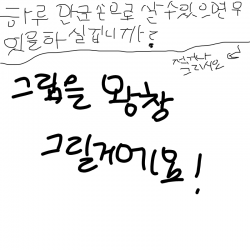 하루 만 군손으로 살 수 있으면 무
엇을 하 실 겁니까?
적극하세요
그림을 왕창
그릴거에요!